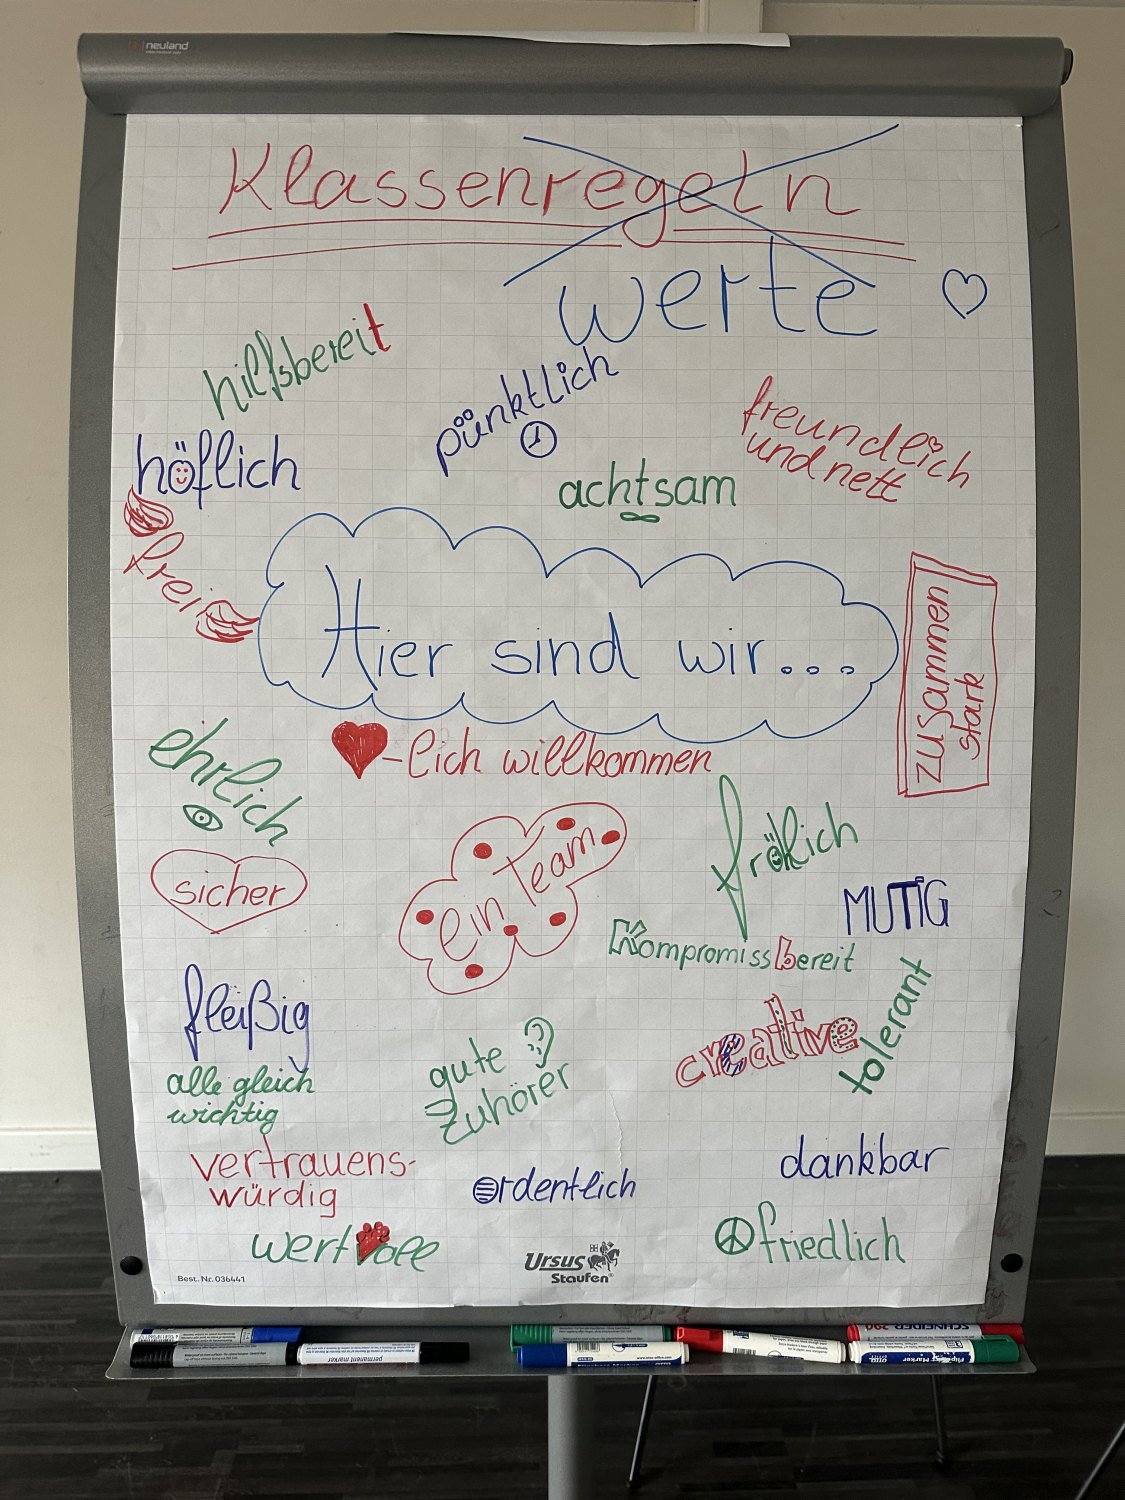 neuland
Klassenregeln
werte
hilfsbereit
pünktlich
freundlich
und nett
höflich
achtsam
frei
Hier sind wir...
zusammen
stark
ehrlich
-lich willkommen
ein Team
fröhlich
sicher
MUTIG
Kompromissbereit
fleißig
creative
tolerant
gute
Zuhörer
alle gleich
wichtig
vertrauens-
würdig
ordentlich
dankbar
wertvoll
friedlich
Ursus
Staufen®
Best. Nr. 036441
permanent marker
SCHNEIDER 290